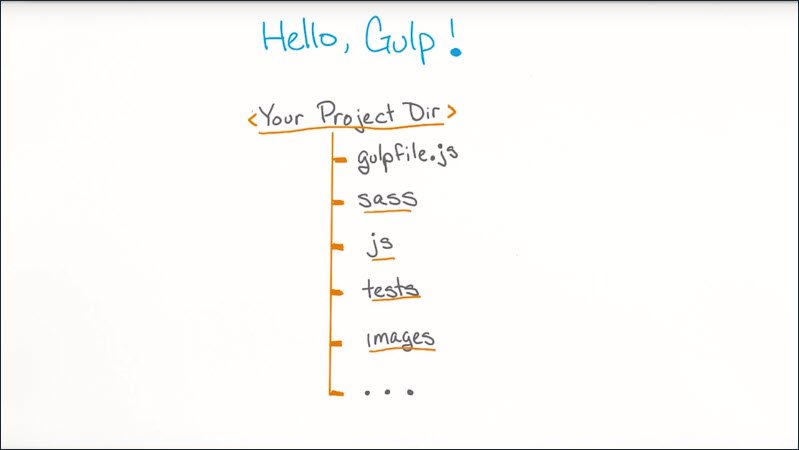 Hello, Gulp!
<Your Project Dir>
gulpfile.js
sass
js
tests
images
...